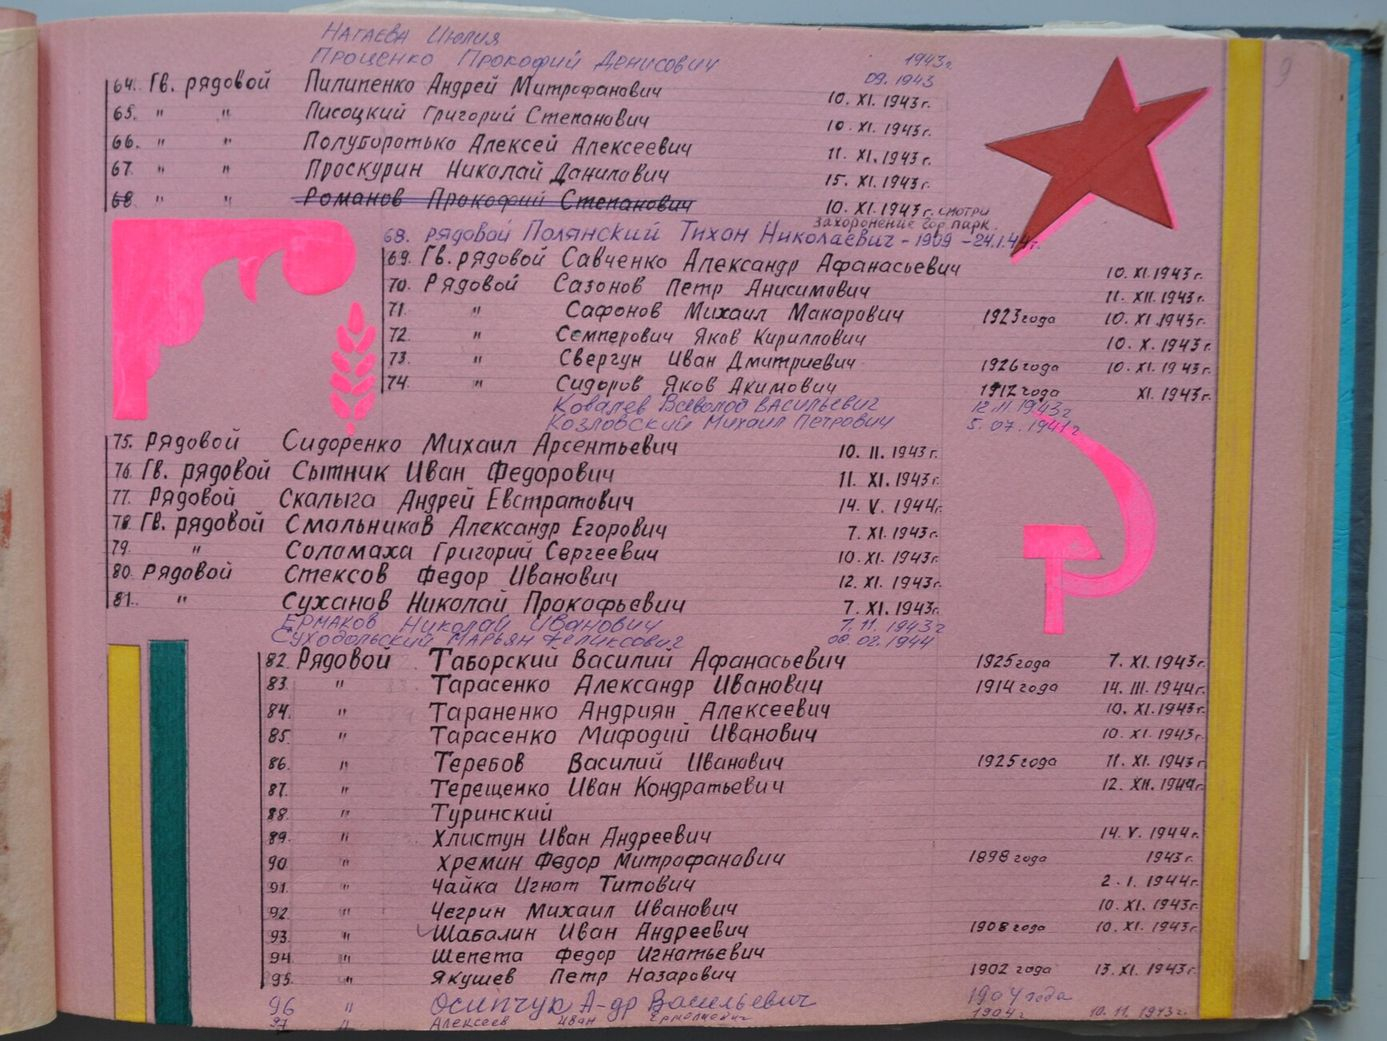 Нагаева Июлия
Проценко Прокофий Денисович 1943г
09.1943
64. Гв. рядовой Пилипенко Андрей Митрофанович 10. XI. 1943г.
65. " " Писоцкий Григорий Степанович 10. XI. 1943г.
66. " " Полуборотько Алексей Алексеевич 11. XI. 1943г.
67. " " Проскурин Николай Данилович 15. XI. 1943г.
68. " " Романов Прокофий Степанович 10. XI. 1943г. смотри
захоронение гор. парк.
68. рядовой Полянский Тихон Николаевич - 1909 - 24.1.44г.
69. Гв. рядовой Савченко Александр Афанасьевич 10. XI. 1943г.
70. Рядовой Сазонов Петр Анисимович 11. XII. 1943г.
71 " Сафонов Михаил Макарович 1923 года 10. XI. 1943г.
72. " Семперович Яков Кириллович 10. X. 1943г.
73. " Свергун Иван Дмитриевич 1926 года 10. XI. 1943г.
74. " Сидоров Яков Акимович 1912 года XI. 1943г.
Ковалев Всеволод Васильевич 12.11.1943г
Козловский Михаил Петрович 5.07.1941г
75. Рядовой Сидоренко Михаил Арсентьевич 10. II. 1943г.
76. Гв. рядовой Сытник Иван Федорович 11. XI. 1943г.
77. Рядовой Скалыга Андрей Евстратович 14. V. 1944г.
78. Гв. рядовой Смальников Александр Егорович 7. XI. 1943г.
79. " Соламаха Григорий Сергеевич 10. XI. 1943г.
80. Рядовой Стексов Федор Иванович 12. XI. 1943г.
81. " Суханов Николай Прокофьевич 7. XI. 1943г.
Ермаков Николай Иванович 7.11.1943г
Суходольский Марьян Феликсович 02.1944
82. Рядовой Таборский Василий Афанасьевич 1925 года 7. XI. 1943г.
83. " Тарасенко Александр Иванович 1914 года 14. III. 1944г.
84. " Тараненко Андриян Алексеевич 10. XI. 1943г.
85. " Тарасенко Мифодий Иванович 10. XI. 1943г.
86. " Теребов Василий Иванович 1925 года 11. XI. 1943г.
87. " Терещенко Иван Кондратьевич 12. XII. 1944г.
88. " Туринский
89. " Хлистун Иван Андреевич 14. V. 1944г.
90 " Хремин Федор Митрофанович 1898 года 1943г.
91. " Чайка Игнат Титович 2. I. 1944г.
92. " Чегрин Михаил Иванович 10. XI. 1943г.
93. " Шабалин Иван Андреевич 1908 года 10. XI. 1943г.
94. " Шепета Федор Игнатьевич
95. " Якушев Петр Назарович 1902 года 13. XI. 1943г.
96 " Осипчук А-др Васильевич 1904 года
97 " Алексеев Иван Ермолаевич 1904г 10.11.1943г.
9